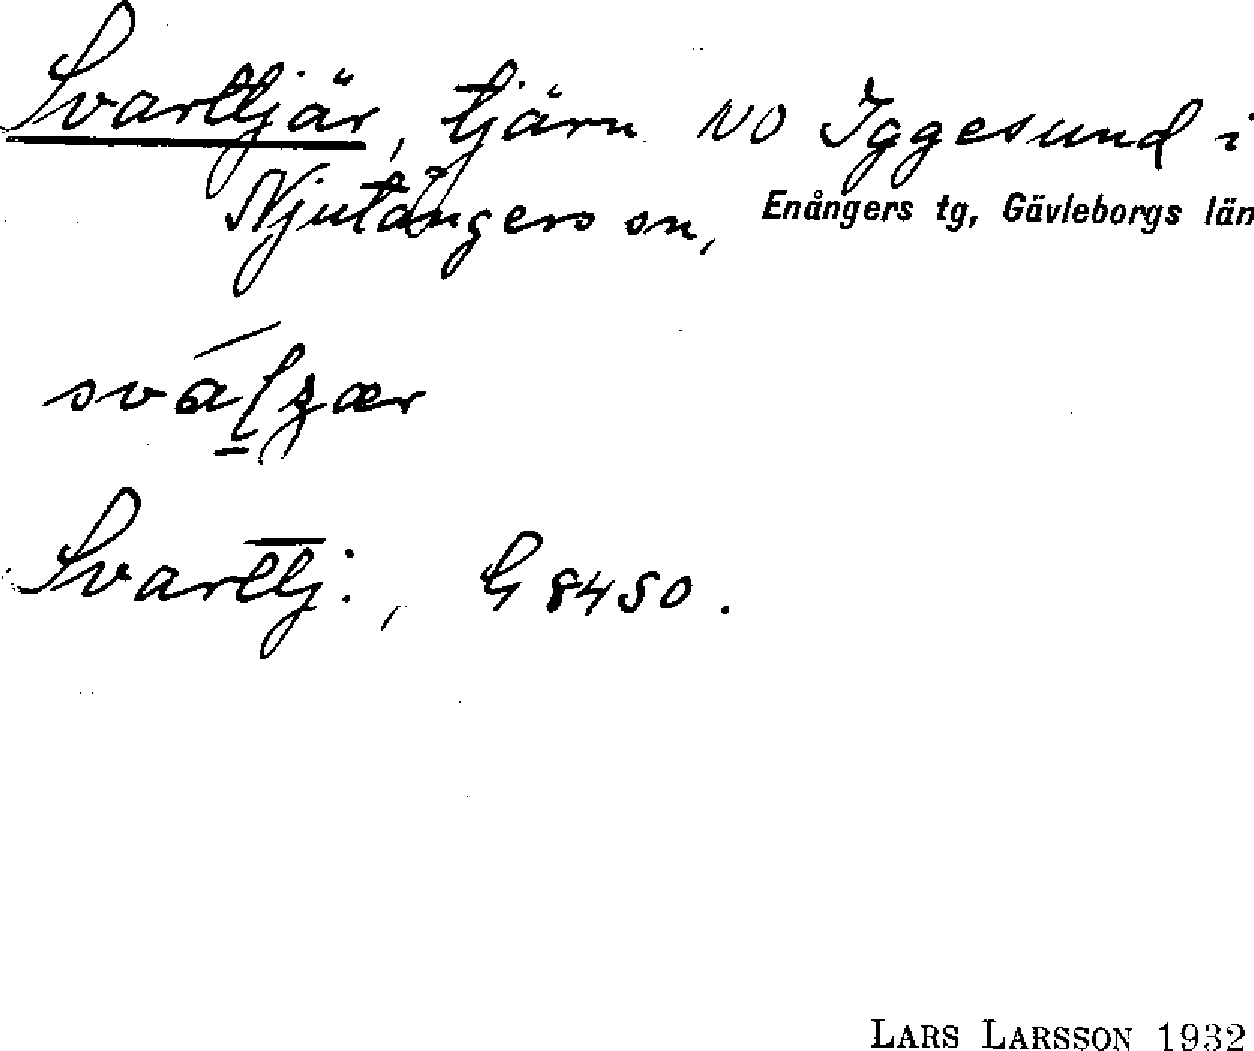 Svarttjär, tjärn NO Iggesund i
Njutångers sn, Enångers tg, Gävleborgs län
Svarttj:, G 8450.
LARS LARSSON 1932